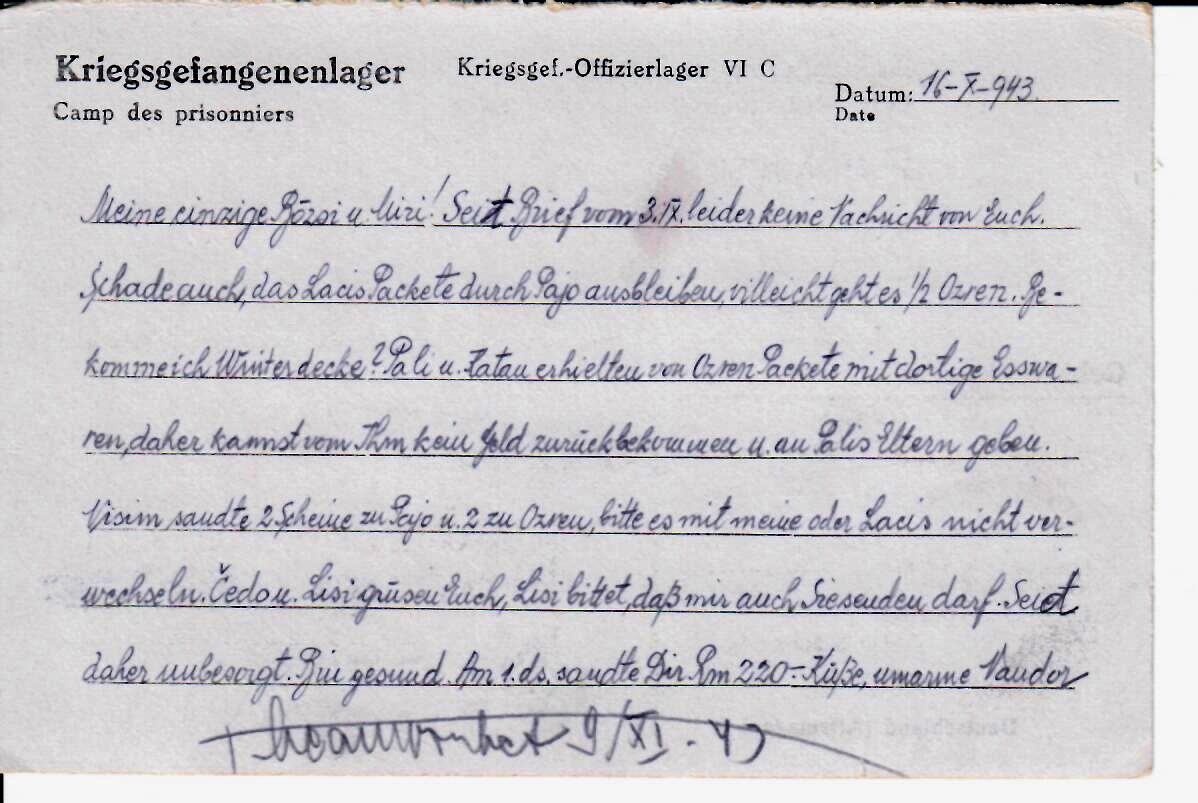 Kriegsgefangenenlager
Camp des prisonniers
Kriegsgef.-Offizierlager VI C
Datum: 16-X-943.
Date
Meine einzige Rózsi u. Miri! Seit Brief vom 3.IX. leider keine Nachricht von Euch.
Schade auch, das Lacis Packete durch Pajo ausbleiben, villeicht geht es 1/2 Ozren. Be-
komme ich Winterdecke? Pali u. erhielten von Ozren Packete mit dortige Esswa-
ren, daher kannst vom Ihm kein Geld zurückbekommen u. an Palis Eltern geben.
sandte 2 Scheine zu Pajo u. 2 zu Ozren, bitte es mit meine oder Lacis nicht ver-
wechseln. Čedo u. Lisi grüsen Euch, Lisi bittet, daß mir auch Sie senden darf. Seid
daher unbesorgt. Bin gesund. Am 1. ds. sandte Dir Rm 220.- Küße, umarme Nandor
9/XI - 43